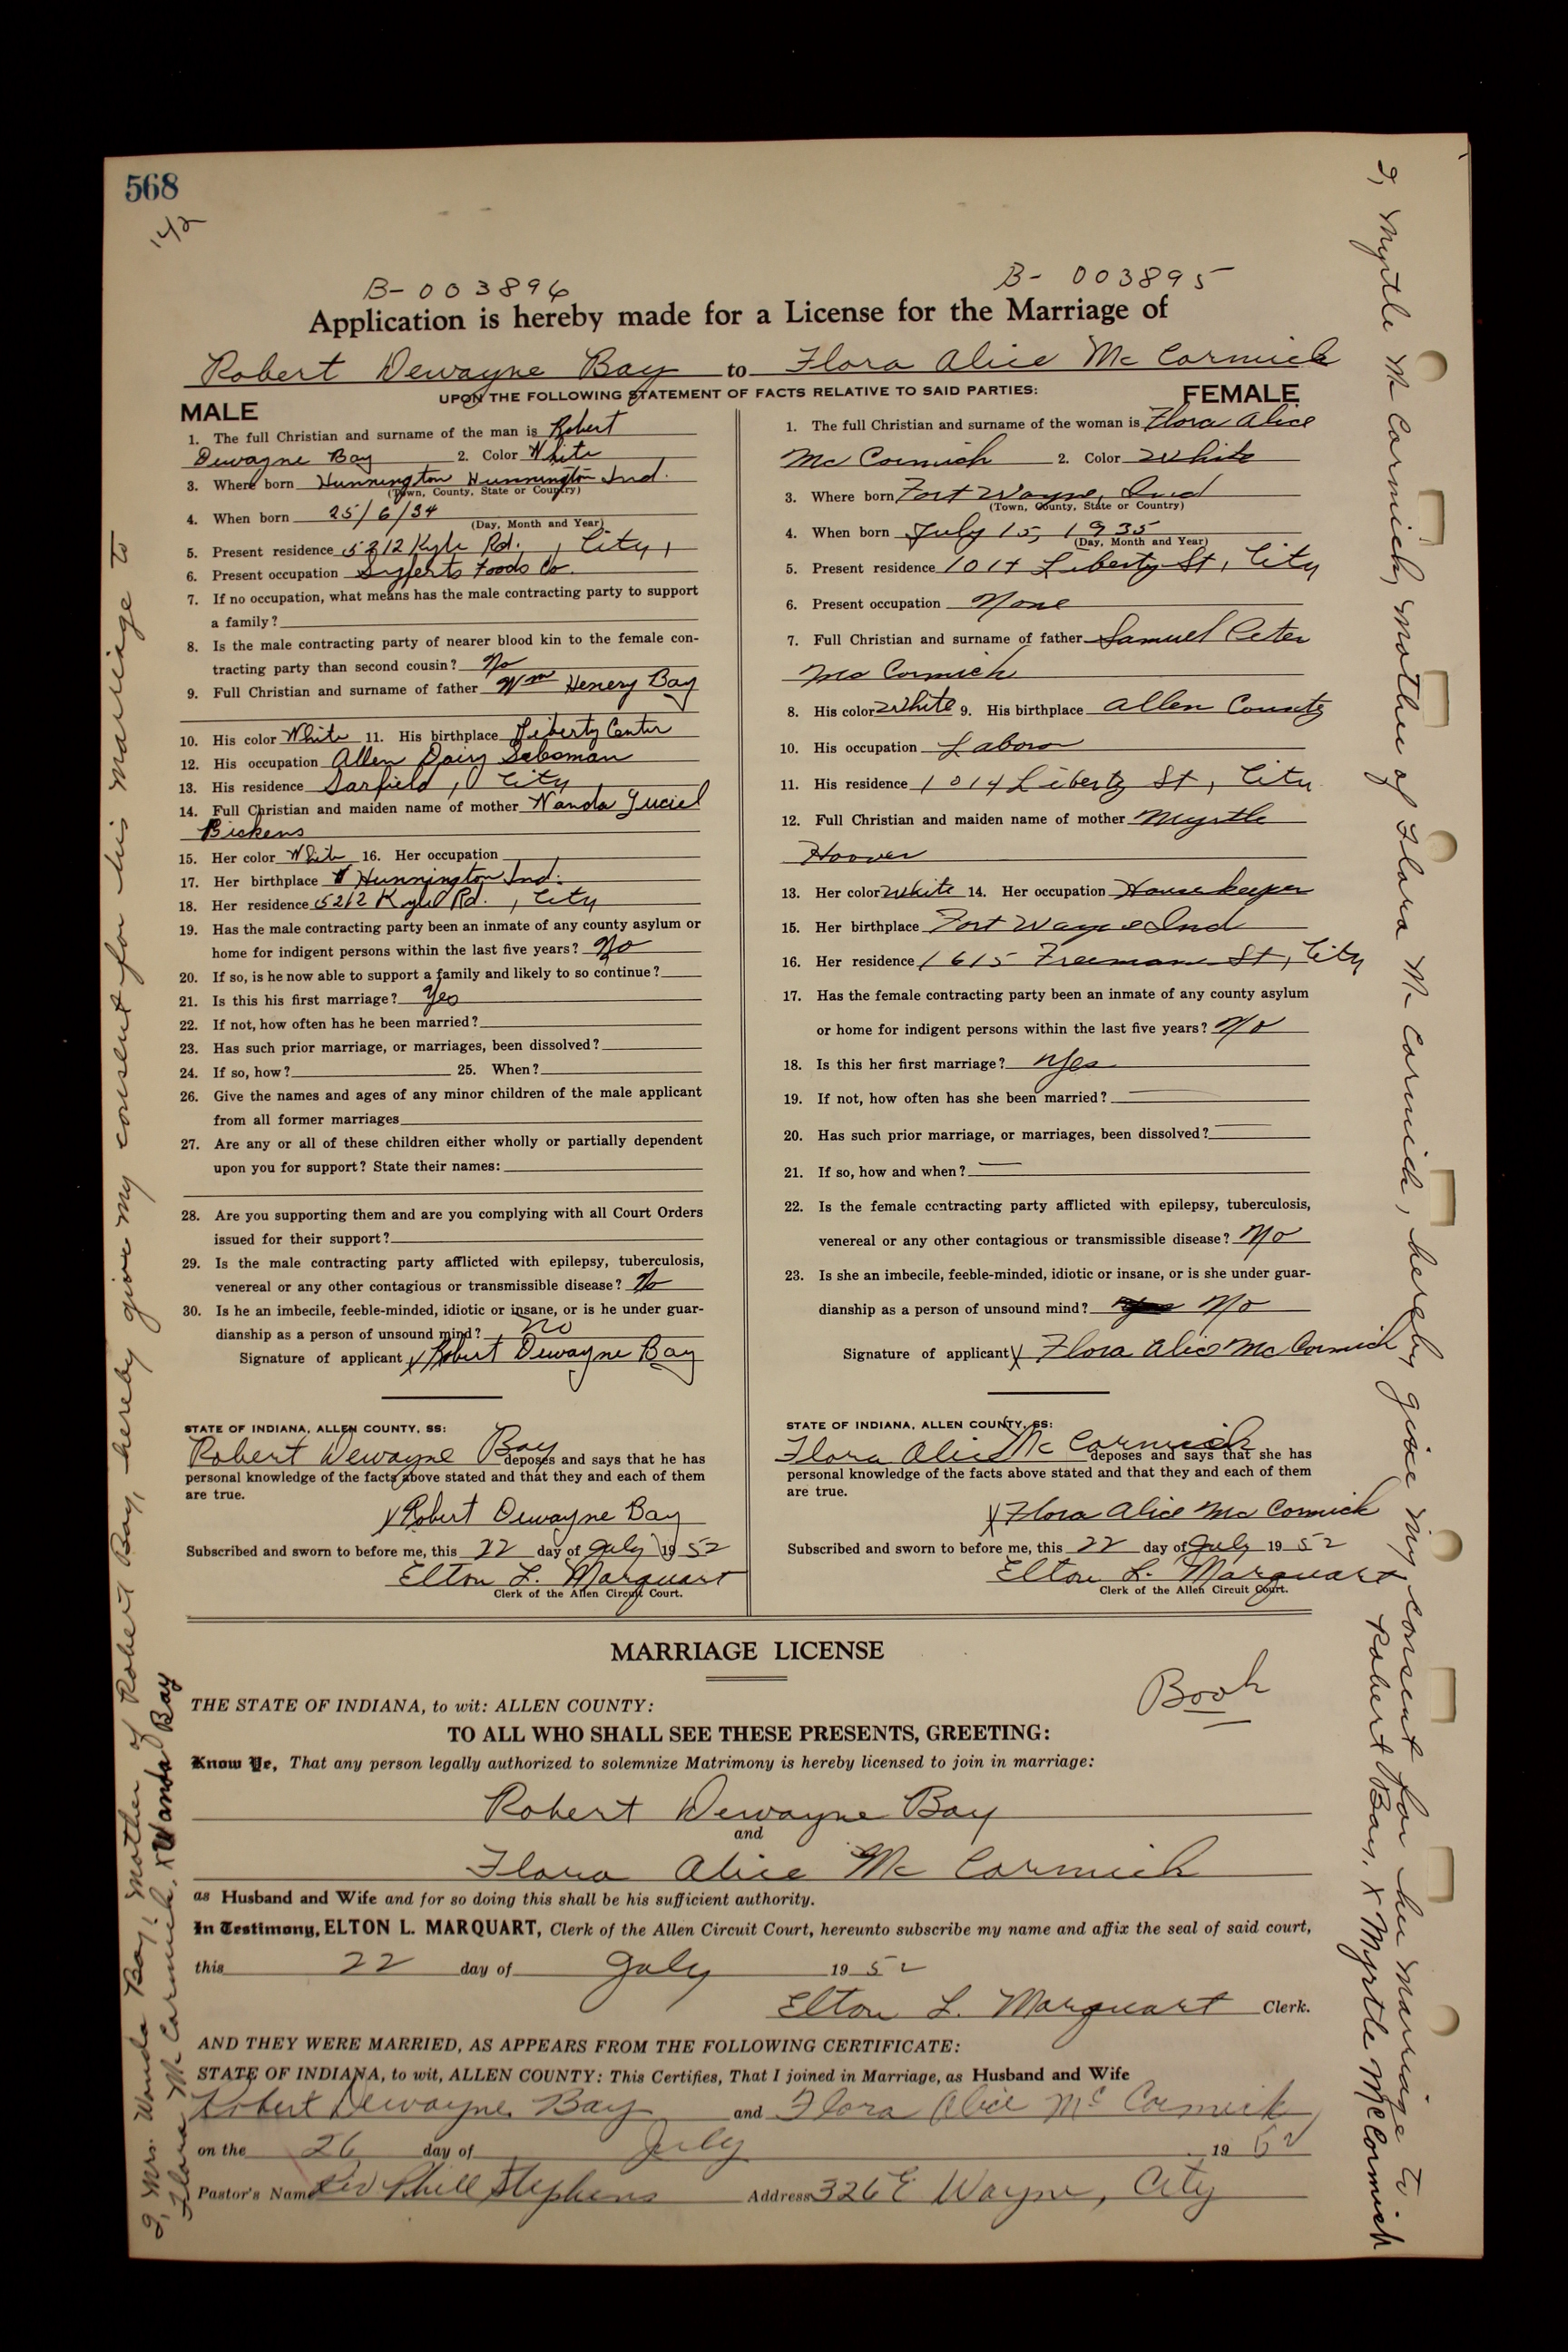 568
B-003894
B- 003895
Application is hereby made for a License for the Marriage of
Robert Dewayne Bay to Flora Alice Mc Cormick
UPON THE FOLLOWING STATEMENT OF FACTS RELATIVE TO SAID PARTIES:
MALE
1. The full Christian and surname of the man is Robert
Dewayne Bay 2. Color White
3. Where born Hunnington Hunnington Ind.
(Town, County, State or Country)
4. When born 25/6/34
(Day, Month and Year)
5. Present residence 5212 Kyle Rd. , City,
6. Present occupation Syferts Foods Co.
7. If no occupation, what means has the male contracting party to support
a family?
8. Is the male contracting party of nearer blood kin to the female con-
tracting party than second cousin? No
9. Full Christian and surname of father Wm Henery Bay
10. His color White 11. His birthplace Liberty Center
12. His occupation Allen Dairy Salesman
13. His residence Garfield, City
14. Full Christian and maiden name of mother Wanda Luciel
Bickens
15. Her color White 16. Her occupation
17. Her birthplace Hunnington Ind.
18. Her residence 5212 Kyle Rd. , City
19. Has the male contracting party been an inmate of any county asylum or
home for indigent persons within the last five years? No
20. If so, is he now able to support a family and likely to so continue?
21. Is this his first marriage? Yes
22. If not, how often has he been married?
23. Has such prior marriage, or marriages, been dissolved?
24. If so, how? 25. When?
26. Give the names and ages of any minor children of the male applicant
from all former marriages
27. Are any or all of these children either wholly or partially dependent
upon you for support? State their names:
28. Are you supporting them and are you complying with all Court Orders
issued for their support?
29. Is the male contracting party afflicted with epilepsy, tuberculosis,
venereal or any other contagious or transmissible disease? No
30. Is he an imbecile, feeble-minded, idiotic or insane, or is he under guar-
dianship as a person of unsound mind? no
Signature of applicant x Robert Dewayne Bay
STATE OF INDIANA, ALLEN COUNTY, SS:
Robert Dewayne Bay deposes and says that he has
personal knowledge of the facts above stated and that they and each of them
are true.
x Robert Dewayne Bay
Subscribed and sworn to before me, this 22 day of July 19 52
Elton L. Marquart
Clerk of the Allen Circuit Court.
FEMALE
1. The full Christian and surname of the woman is Flora Alice
Mc Cormick 2. Color White
3. Where born Fort Wayne, Ind
(Town, County, State or Country)
4. When born July 15, 1935
(Day, Month and Year)
5. Present residence 1014 Liberty St, City
6. Present occupation None
7. Full Christian and surname of father Samuel Peter
Mc Cormick
8. His color White 9. His birthplace Allen County
10. His occupation Labor
11. His residence 1014 Liberty St, City
12. Full Christian and maiden name of mother Myrtle
Hoover
13. Her color White 14. Her occupation Housekeeper
15. Her birthplace Fort Wayne Ind
16. Her residence 1615 Freeman St, City
17. Has the female contracting party been an inmate of any county asylum
or home for indigent persons within the last five years? No
18. Is this her first marriage? Yes
19. If not, how often has she been married?
20. Has such prior marriage, or marriages, been dissolved?
21. If so, how and when?
22. Is the female contracting party afflicted with epilepsy, tuberculosis,
venereal or any other contagious or transmissible disease? No
23. Is she an imbecile, feeble-minded, idiotic or insane, or is she under guar-
dianship as a person of unsound mind? No
Signature of applicant x Flora Alice Mc Cormick
STATE OF INDIANA, ALLEN COUNTY, SS:
Flora Alice Mc Cormick deposes and says that she has
personal knowledge of the facts above stated and that they and each of them
are true.
x Flora Alice Mc Cormick
Subscribed and sworn to before me, this 22 day of July 19 52
Elton L. Marquart
Clerk of the Allen Circuit Court.
MARRIAGE LICENSE
Book
THE STATE OF INDIANA, to wit: ALLEN COUNTY:
TO ALL WHO SHALL SEE THESE PRESENTS, GREETING:
Know Ye, That any person legally authorized to solemnize Matrimony is hereby licensed to join in marriage:
Robert Dewayne Bay
and
Flora Alice Mc Cormick
as Husband and Wife and for so doing this shall be his sufficient authority.
In Testimony, ELTON L. MARQUART, Clerk of the Allen Circuit Court, hereunto subscribe my name and affix the seal of said court,
this 22 day of July 19 52
Elton L. Marquart Clerk.
AND THEY WERE MARRIED, AS APPEARS FROM THE FOLLOWING CERTIFICATE:
STATE OF INDIANA, to wit, ALLEN COUNTY: This Certifies, That I joined in Marriage, as Husband and Wife
Robert Dewayne Bay and Flora Alice Mc Cormick
on the 26 day of July 19 52
Pastor's Name Rev Phill Stephens Address 326 E Wayne, City
I, Mrs. Wanda Bay, mother of Robert Bay, hereby give my consent for his marriage to
Flora Mc Cormick. x Wanda Bay
I, Myrtle Mc Cormick, mother of Flora Mc Cormick, hereby give my consent for her marriage to
Robert Bay. x Myrtle McCormick